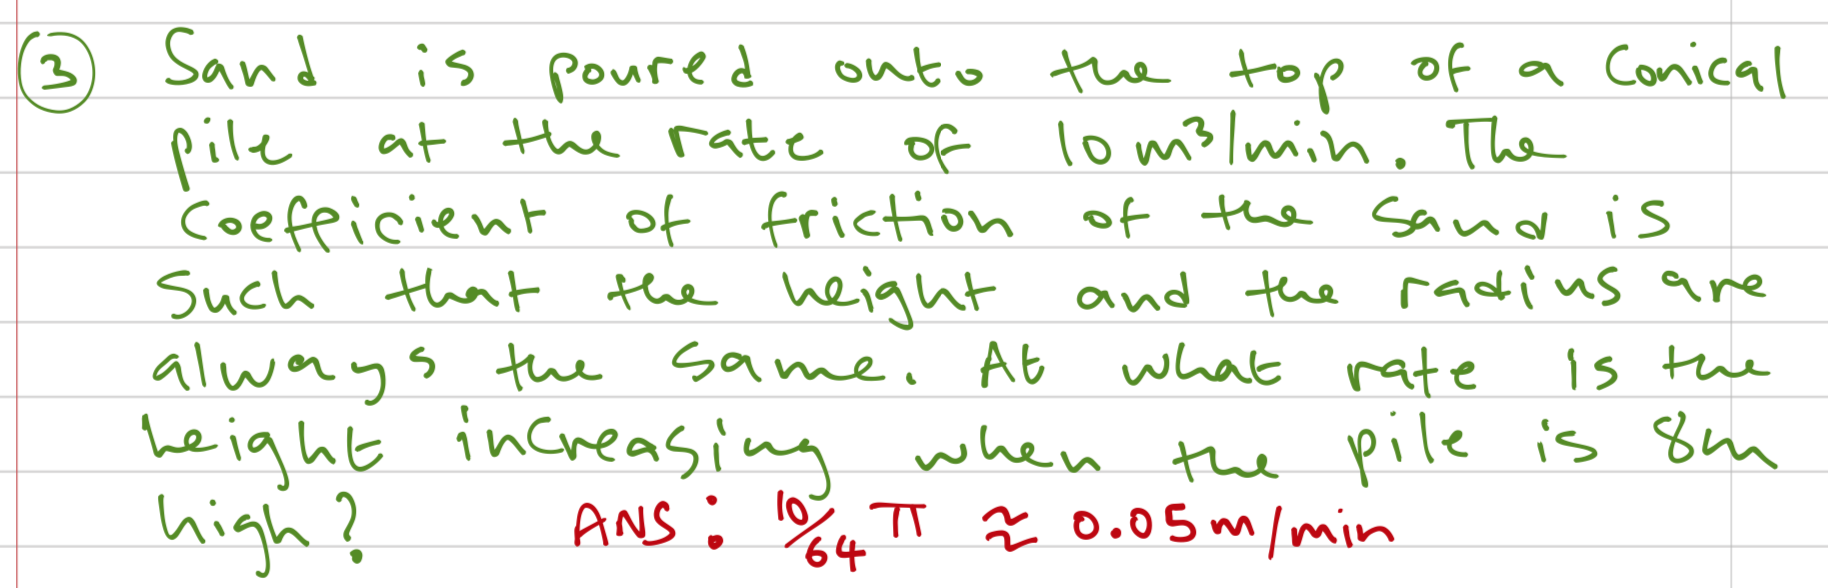 ③ Sand is poured onto the top of a Conical
pile at the rate of 10 m³/min. The
Coefficient of friction of the sand is
Such that the height and the radius are
always the same. At what rate is the
height increasing when the pile is 8m
high? ANS: 10/64 π ≈ 0.05m/min